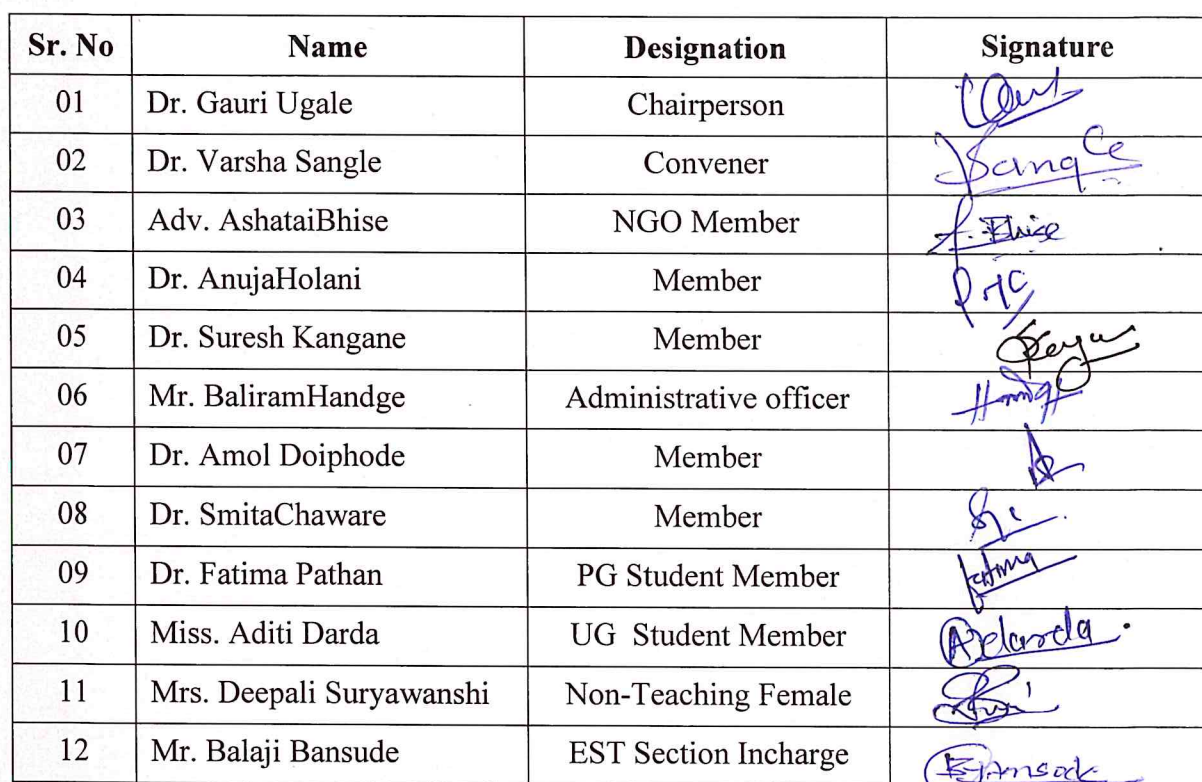 Sr. No Name Designation Signature
01 Dr. Gauri Ugale Chairperson
02 Dr. Varsha Sangle Convener Sangle
03 Adv. AshataiBhise NGO Member A. Bhise
04 Dr. AnujaHolani Member
05 Dr. Suresh Kangane Member
06 Mr. BaliramHandge Administrative officer
07 Dr. Amol Doiphode Member
08 Dr. SmitaChaware Member
09 Dr. Fatima Pathan PG Student Member Fatima
10 Miss. Aditi Darda UG Student Member Adarda.
11 Mrs. Deepali Suryawanshi Non-Teaching Female
12 Mr. Balaji Bansude EST Section Incharge